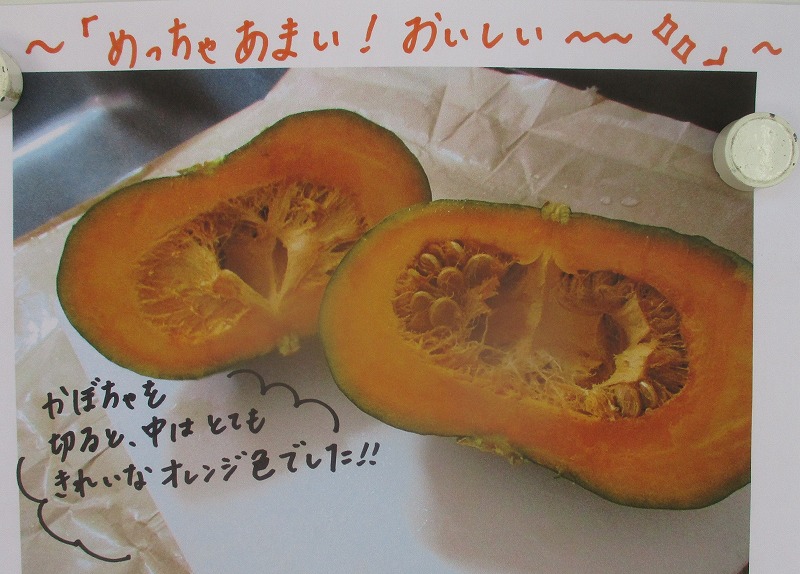 ～「めっちゃ あまい！ おいしい～～」～
かぼちゃを
切ると、中は とても
きれいな オレンジ色でした!!